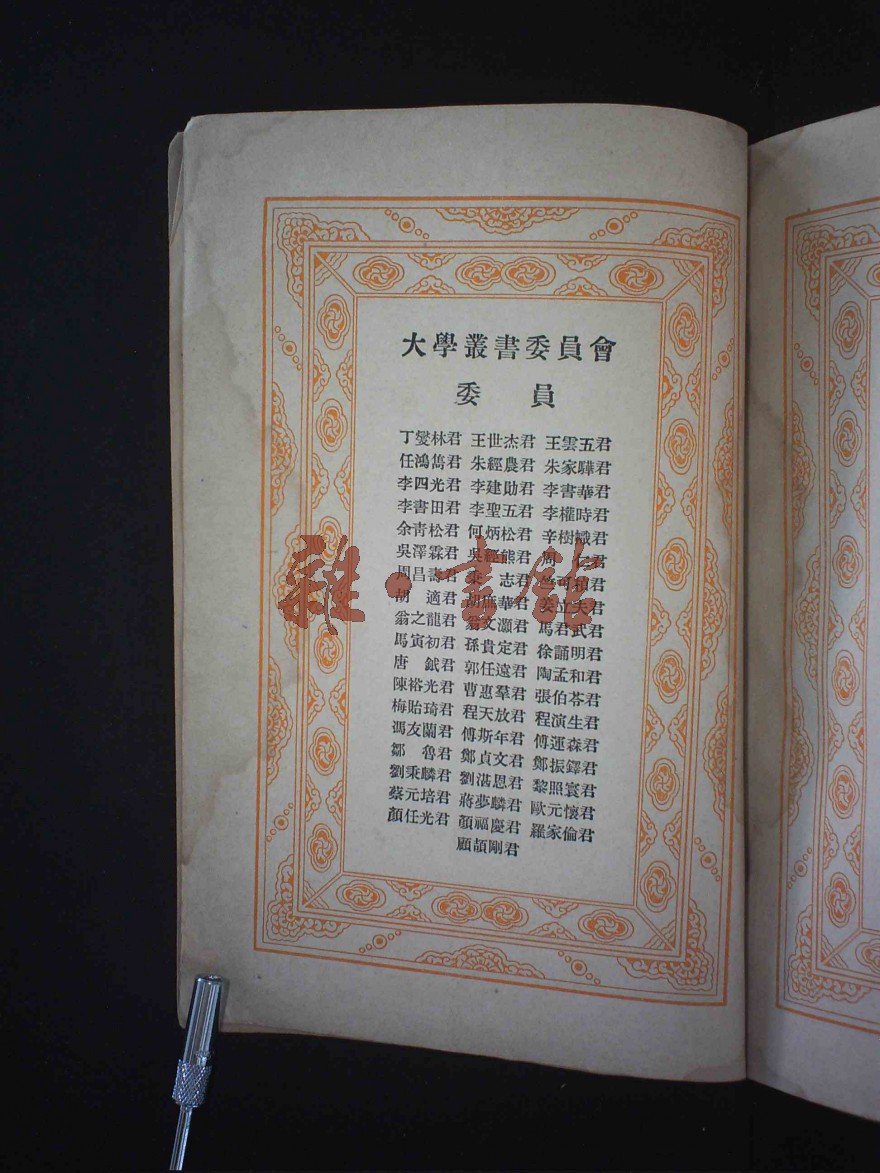 大學叢書委員會
委員
丁燮林君 王世杰君 王雲五君
任鴻雋君 朱經農君 朱家驊君
李四光君 李建勛君 李書華君
李書田君 李聖五君 李權時君
余青松君 何炳松君 辛樹幟君
吳澤霖君 吳經熊君 周仁君
周昌壽君 秉志君 竺可楨君
胡適君 胡庶華君 姜立夫君
翁之龍君 翁文灝君 馬君武君
馬寅初君 孫貴定君 徐誦明君
唐鉞君 郭任遠君 陶孟和君
陳裕光君 曹惠羣君 張伯苓君
梅貽琦君 程天放君 程演生君
馮友蘭君 傅斯年君 傅運森君
鄒魯君 鄭貞文君 鄭振鐸君
劉秉麟君 劉湛恩君 黎照寰君
蔡元培君 蔣夢麟君 歐元懷君
顏任光君 顏福慶君 羅家倫君
顧頡剛君
雜·書館